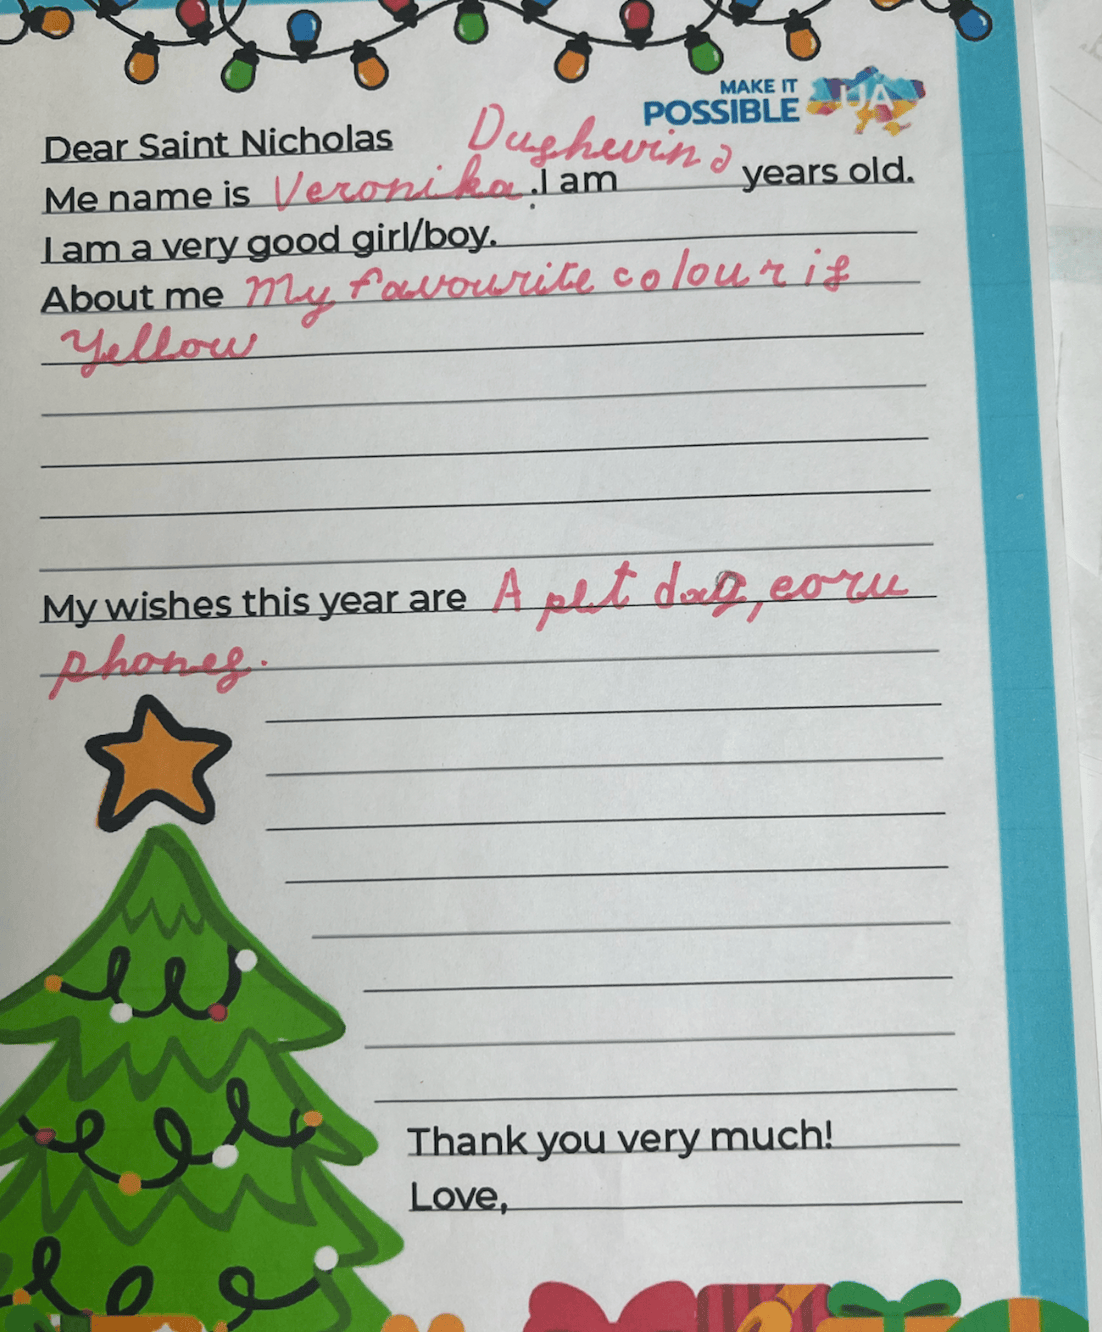 MAKE IT
POSSIBLE UA
Dear Saint Nicholas
Me name is Veronika. I am years old.
I am a very good girl/boy.
About me My favourite colour is
Yellow
My wishes this year are A pet dog,
phones.
Thank you very much!
Love,